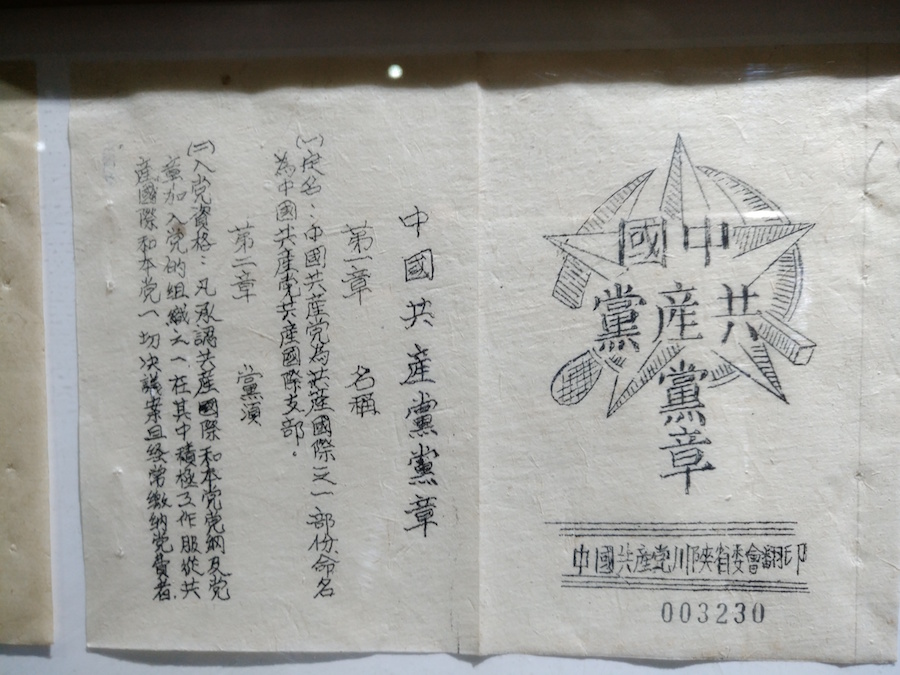 中國
共產黨
黨章
中國共產党川陝省委會翻印
003230
中國共產黨黨章
第一章 名稱
(一)定名：中國共產党為共產國際之一部份.命名
為中國共產党共產國際支部。
第二章 黨
(二)入党資格：凡承認共產國際和本党党綱及党
章加入党的組織之一.在其中積極工作服從共
產國際和本党一切決議案且經常繳納党費者.